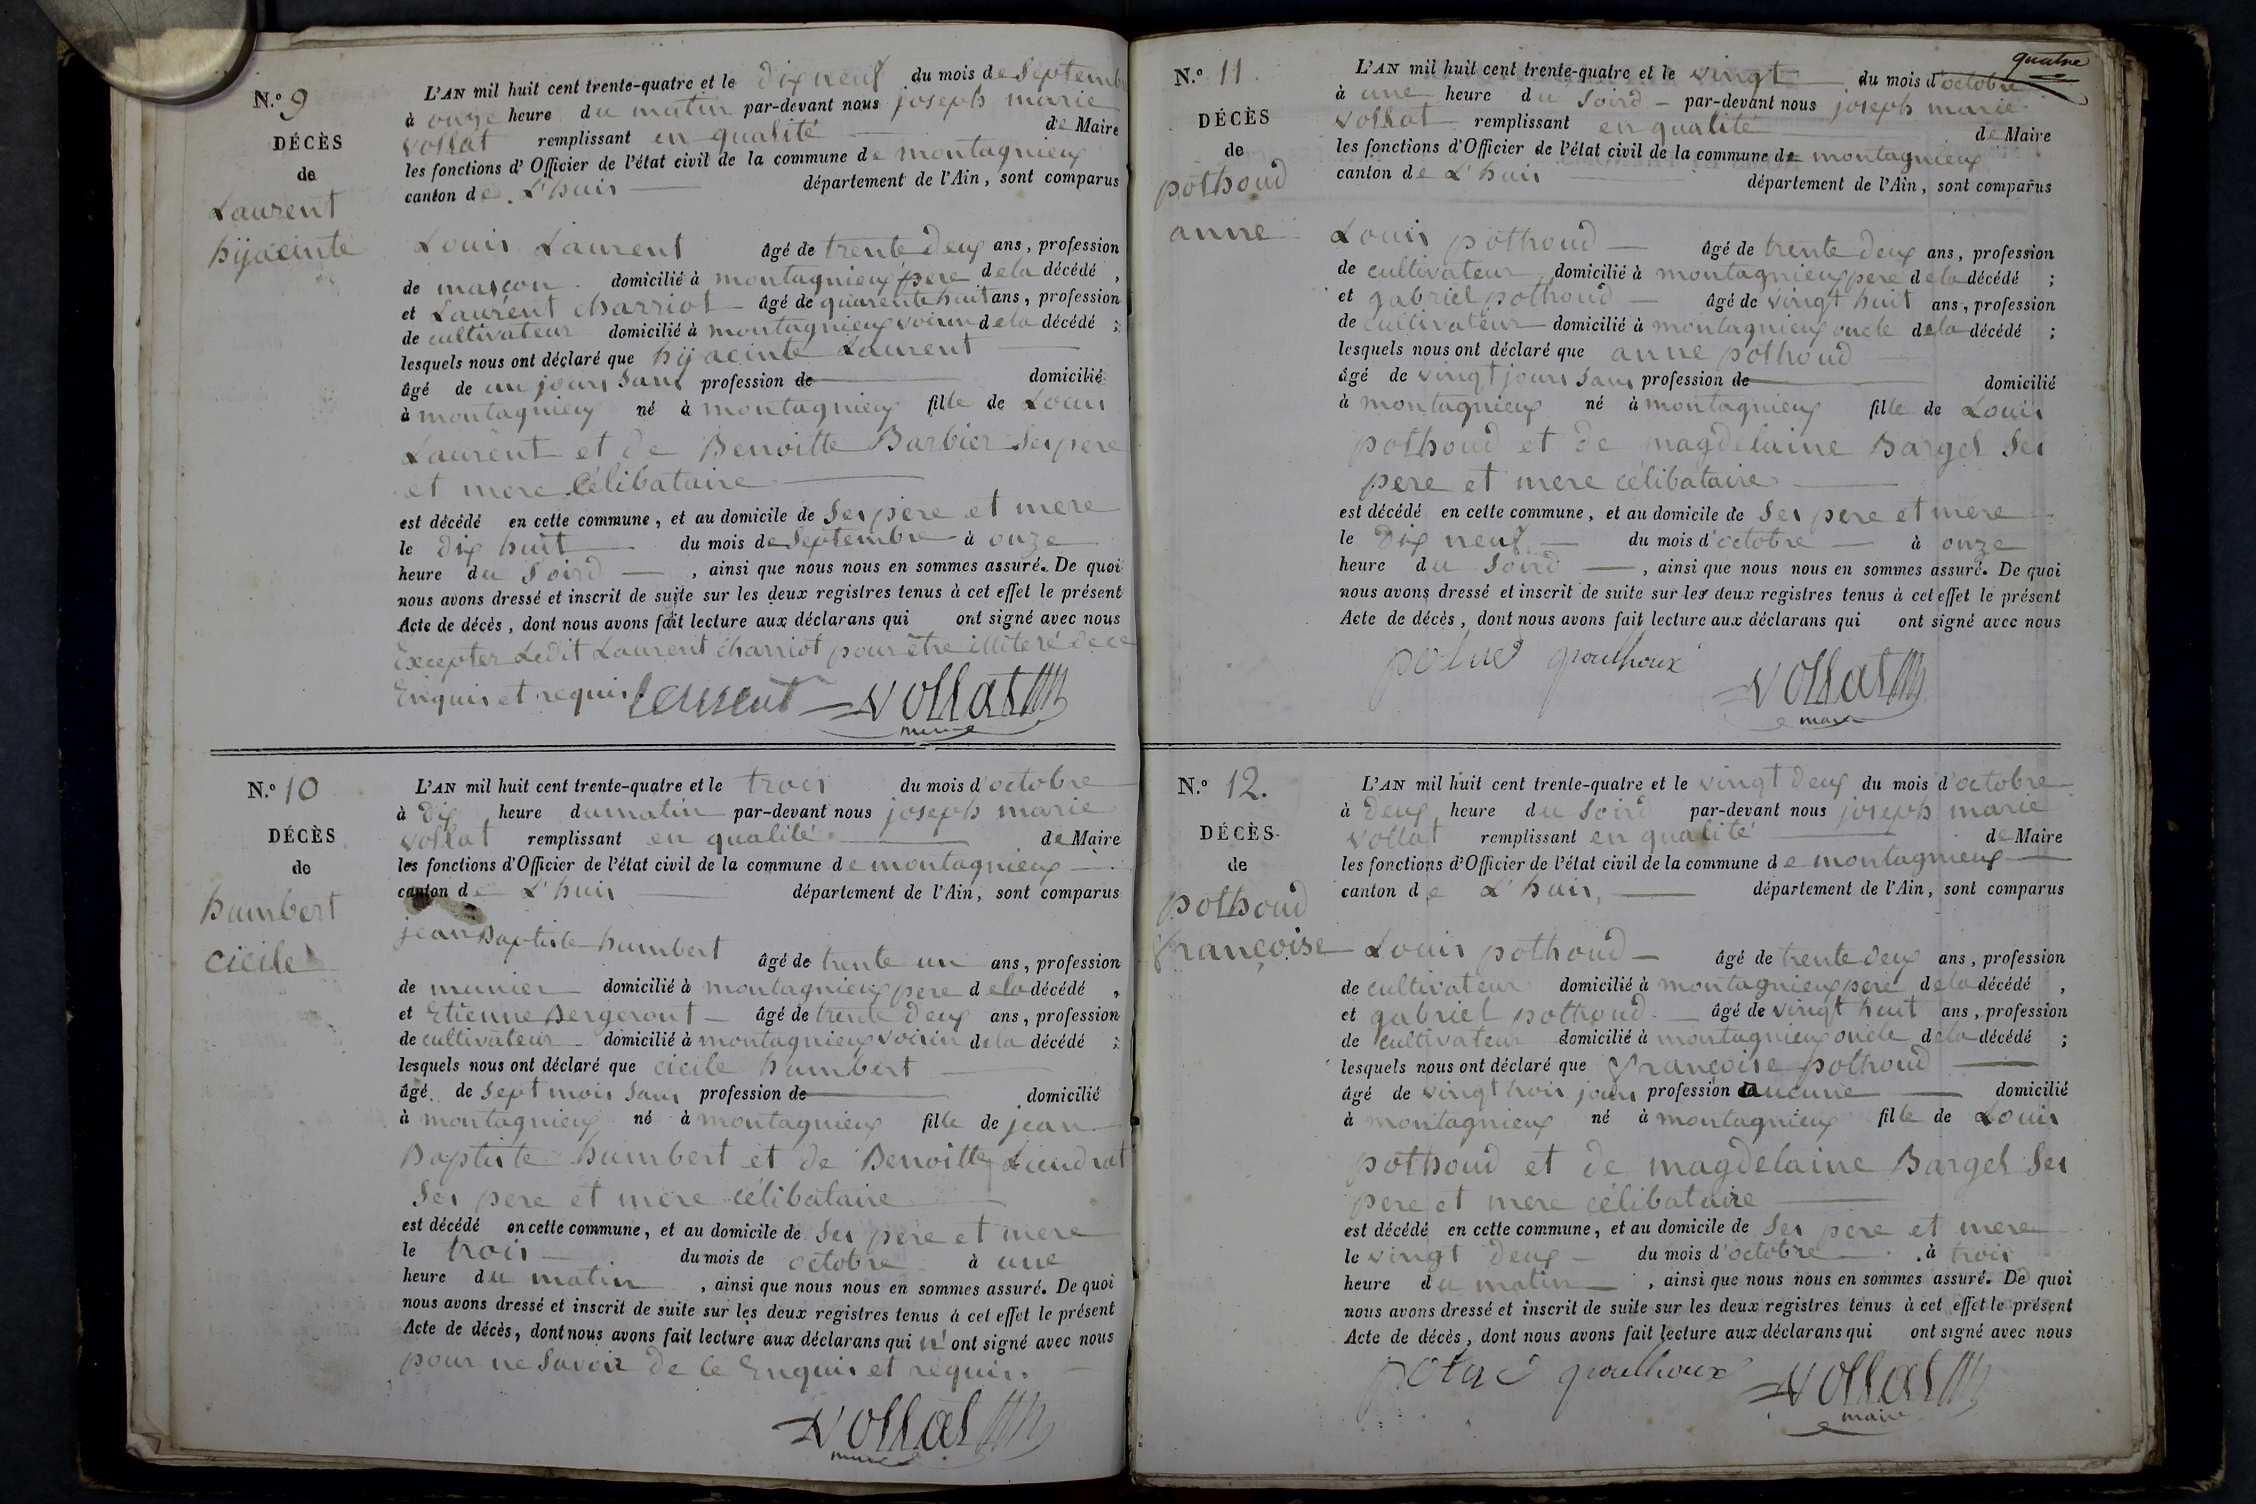 N.º 9
DÉCÈS
de
Laurent
hijacinte
L'AN mil huit cent trente-quatre et le dix neuf du mois de Septembre
à onze heure du matin par-devant nous joseph marie
vollat remplissant en qualité de Maire
les fonctions d'Officier de l'état civil de la commune de montagnieux
canton de L'huis département de l'Ain, sont comparus
Louis Laurent âgé de trente deux ans, profession
de maçon domicilié à montagnieux pere de la décédé ,
et Laurent charriot âgé de quarente huit ans, profession
de cultivateur domicilié à montagnieux voisin de la décédé ;
lesquels nous ont déclaré que hijacinte Laurent
âgé de un jours Sans profession de domicilié
à montagnieux né à montagnieux fille de Louis
Laurent et de Benoitte Barbier Ses pere
et mere célibataire
est décédé en cette commune, et au domicile de Ses père et mere
le dix huit du mois de Septembre à onze
heure du Soird , ainsi que nous nous en sommes assuré. De quoi
nous avons dressé et inscrit de suite sur les deux registres tenus à cet effet le présent
Acte de décès, dont nous avons fait lecture aux déclarans qui ont signé avec nous
Excepter Ledit Laurent charriot pour être illiteré de ce
Enquis et requis. laurent vollat
maire
N.º 10
DÉCÈS
de
humbert
cicile
L'AN mil huit cent trente-quatre et le trois du mois d'octobre
à dix heure du matin par-devant nous joseph marie
vollat remplissant en qualité de Maire
les fonctions d'Officier de l'état civil de la commune de montagnieux
canton de L'huis département de l'Ain, sont comparus
jean Baptiste humbert âgé de trente un ans, profession
de munier domicilié à montagnieux pere de la décédé ,
et Etienne Bergeront âgé de trente deux ans, profession
de cultivateur domicilié à montagnieux voisin de la décédé ;
lesquels nous ont déclaré que cicile humbert
âgé de Sept mois Sans profession de domicilié
à montagnieux né à montagnieux fille de jean
Baptiste humbert et de Benoitte
Ses pere et mere célibataire
est décédé en cette commune, et au domicile de Ses père et mere
le trois du mois de octobre à une
heure du matin , ainsi que nous nous en sommes assuré. De quoi
nous avons dressé et inscrit de suite sur les deux registres tenus à cet effet le présent
Acte de décès, dont nous avons fait lecture aux déclarans qui n'ont signé avec nous
pour ne Savoir de ce Enquis et requis.
vollat
maire
quatre
N.º 11
DÉCÈS
de
pothoud
anne
L'AN mil huit cent trente-quatre et le vingt du mois d'octobre
à une heure du Soird par-devant nous joseph marie
vollat remplissant en qualité de Maire
les fonctions d'Officier de l'état civil de la commune de montagnieux
canton de L'huis département de l'Ain, sont comparus
Louis pothoud âgé de trente deux ans, profession
de cultivateur domicilié à montagnieux pere de la décédé ;
et gabriel pothoud âgé de vingt huit ans, profession
de cultivateur domicilié à montagnieux oncle de la décédé ;
lesquels nous ont déclaré que anne pothoud
âgé de vingt jours Sans profession de domicilié
à montagnieux né à montagnieux fille de Louis
pothoud et de magdelaine Barget Ses
pere et mere célibataire
est décédé en cette commune, et au domicile de Ses pere et mere
le Dix neuf du mois d'octobre à onze
heure du Soird , ainsi que nous nous en sommes assuré. De quoi
nous avons dressé et inscrit de suite sur les deux registres tenus à cet effet le présent
Acte de décès, dont nous avons fait lecture aux déclarans qui ont signé avec nous
pouthoux vollat
maire
N.º 12.
DÉCÈS
de
pothoud
françoise
L'AN mil huit cent trente-quatre et le vingt deux du mois d'octobre
à deux heure du Soird par-devant nous joseph marie
vollat remplissant en qualité de Maire
les fonctions d'Officier de l'état civil de la commune de montagnieux
canton de L'huis, département de l'Ain, sont comparus
Louis pothoud âgé de trente deux ans, profession
de cultivateur domicilié à montagnieux pere de la décédé ,
et gabriel pothoud âgé de vingt huit ans, profession
de cultivateur domicilié à montagnieux oncle de la décédé ;
lesquels nous ont déclaré que françoise pothoud
âgé de vingt trois jours profession aucune domicilié
à montagnieux né à montagnieux fille de Louis
pothoud et de magdelaine Barget Ses
pere et mere célibataire
est décédé en cette commune, et au domicile de Ses pere et mere
le vingt deux du mois d'octobre à trois
heure du matin , ainsi que nous nous en sommes assuré. De quoi
nous avons dressé et inscrit de suite sur les deux registres tenus à cet effet le présent
Acte de décès, dont nous avons fait lecture aux déclarans qui ont signé avec nous
pouthoux vollat
maire